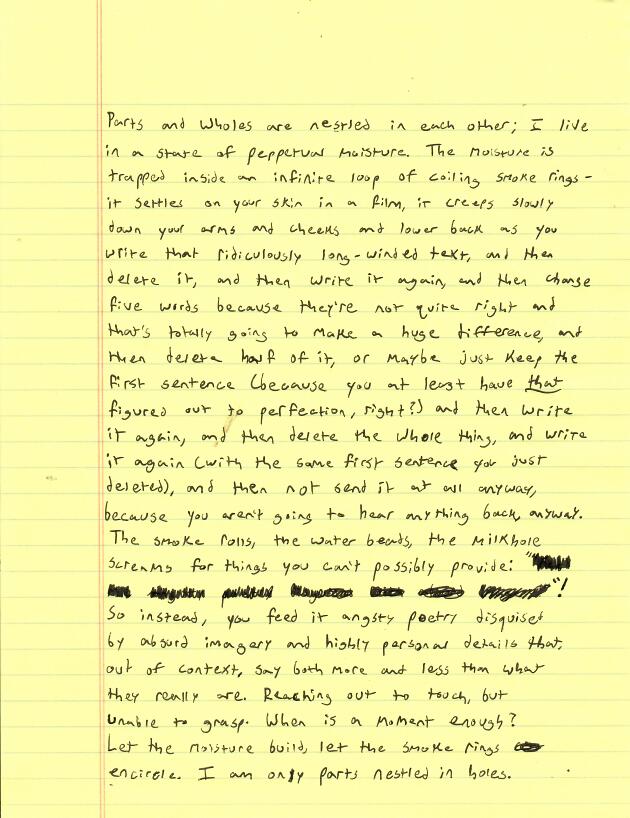 Parts and Wholes are nestled in each other; I live
in a state of peppetual moisture. The moisture is
trapped inside an infinite loop of coiling smoke rings-
it settles on your skin in a film, it creeps slowly
down your arms and cheeks and lower back as you
write that ridiculously long-winded text, and then
delete it, and then write it again, and then change
five words because they're not quite right and
that's totally going to make a huge difference, and
then delete half of it, or maybe just keep the
first sentence (because you at least have that
figured out to perfection, right?) and then write
it again, and then delete the whole thing, and write
it again (with the same first sentence you just
deleted), and then not send it at all anyway,
because you aren't going to hear anything back, anyway.
The smoke rolls, the water beads, the Milkhole
screams for things you can't possibly provide: "
"!
So instead, you feed it angsty poetry disguised
by absurd imagery and highly personal details that,
out of context, say both more and less than what
they really are. Reaching out to touch, but
unable to grasp. When is a moment enough?
Let the moisture build, let the smoke rings
encircle. I am only parts nestled in holes.